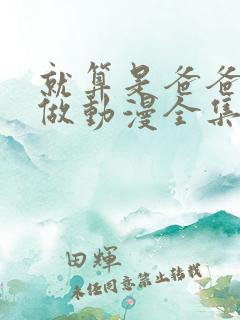 就算是爸爸
做動漫全集
田輝
未经同意禁止转载